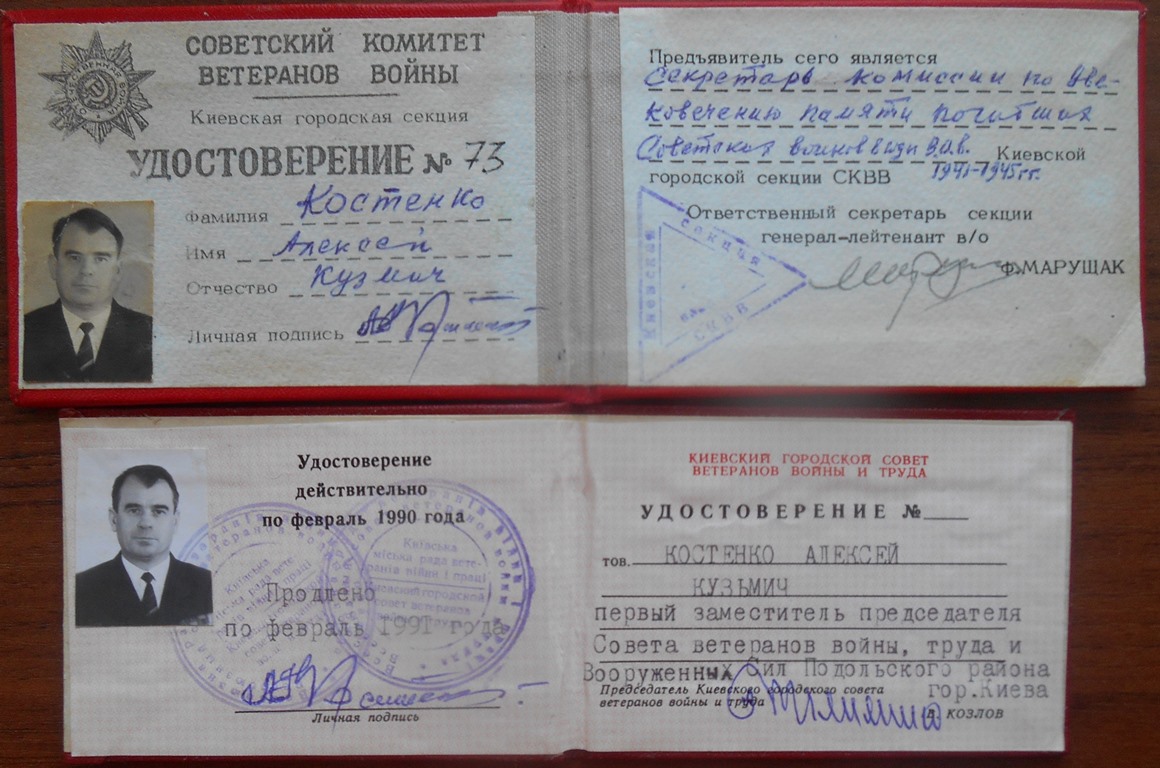 СОВЕТСКИЙ КОМИТЕТ
ВЕТЕРАНОВ ВОЙНЫ
Киевская городская секция
УДОСТОВЕРЕНИЕ № 73
Фамилия Костенко
Имя Алексей
Отчество Кузмич
Личная подпись
Предъявитель сего является
Секретарь комиссии по Уве-
ковечению памяти погибших
Советских воинов в годы В.О.В. Киевской
городской секции СКВВ 1941-1945 гг.
Ответственный секретарь секции
генерал-лейтенант в/о
Ф.МАРУЩАК
Киевская
секция
СКВВ
Удостоверение
действительно
по февраль 1990 года
Київська
міська рада вете-
ранів війни і праці
Продлено
по февраль 1991 года
Личная подпись
КИЕВСКИЙ ГОРОДСКОЙ СОВЕТ
ВЕТЕРАНОВ ВОЙНЫ И ТРУДА
УДОСТОВЕРЕНИЕ №
тов. КОСТЕНКО АЛЕКСЕЙ
КУЗЬМИЧ
первый заместитель председателя
Совета ветеранов войны, труда и
Вооруженных Сил Подольского района
гор.Киева
Председатель Киевского городского совета
ветеранов войны и труда
КОЗЛОВ